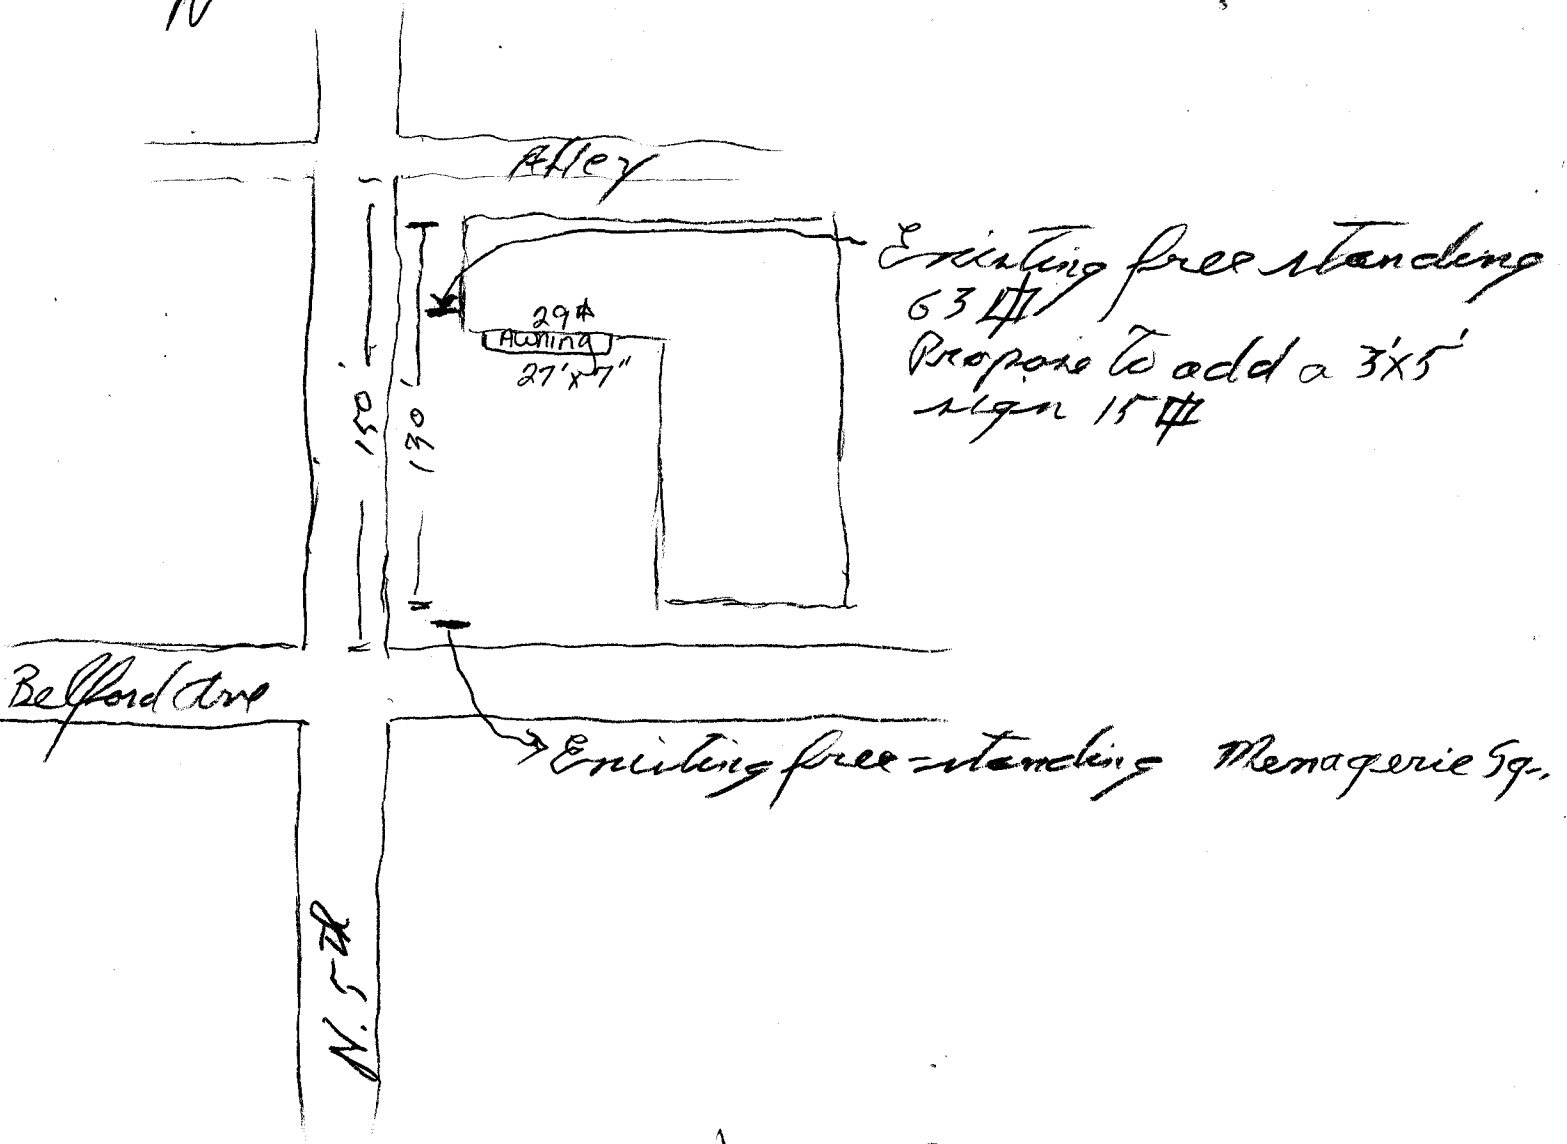 N
Alley
Existing free standing
63 ⌗
Propose to add a 3'x5'
sign 15 ⌗
29 ⌗
Awning
27'x7"
150'
130'
Belford Ave
Existing free-standing Menagerie Sq.
N. 5th